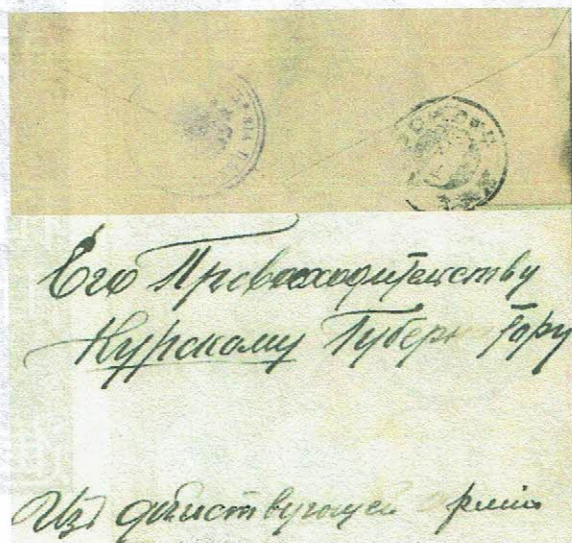 Его Превосходительству
Курскому Губернатору
Изъ действующей армiи